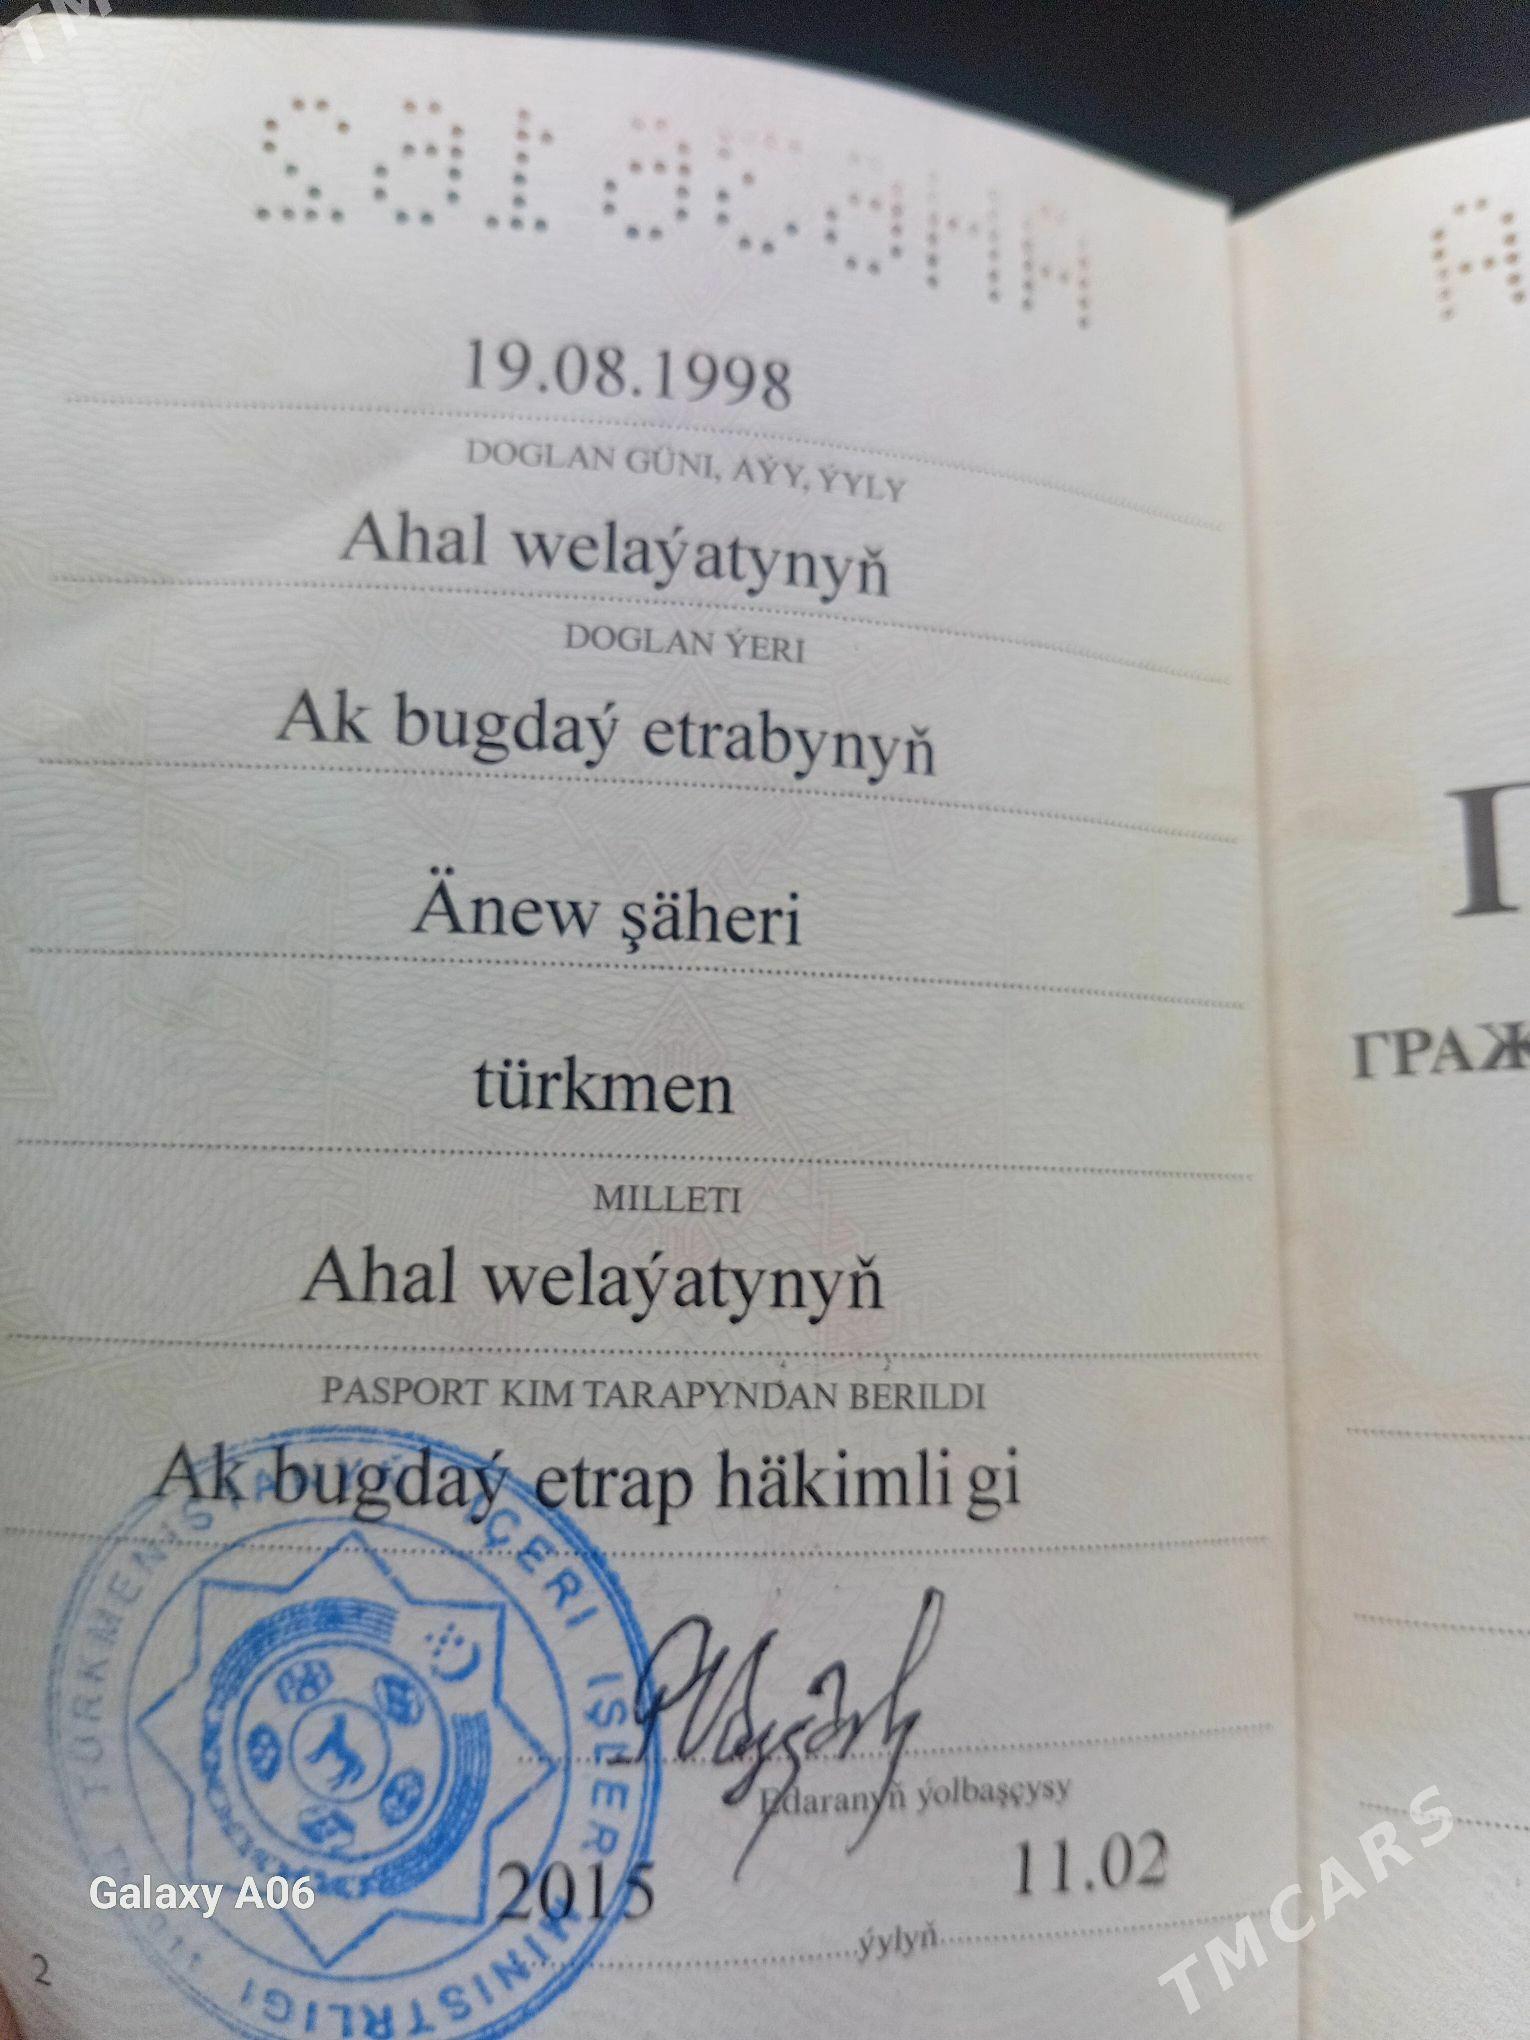 19.08.1998
DOGLAN GÜNI, AÝY, ÝYLY
Ahal welaýatynyň
DOGLAN ÝERI
Ak bugdaý etrabynyň
Änew şäheri
türkmen
MILLETI
Ahal welaýatynyň
PASPORT KIM TARAPYNDAN BERILDI
Ak bugdaý etrap häkimligi
TÜRKMENISTANYŇ IÇERI IŞLER MINISTRLIGI
Edaranyň ýolbaşçysy
2015 11.02
ýylyň
2
Galaxy A06
TMCARS